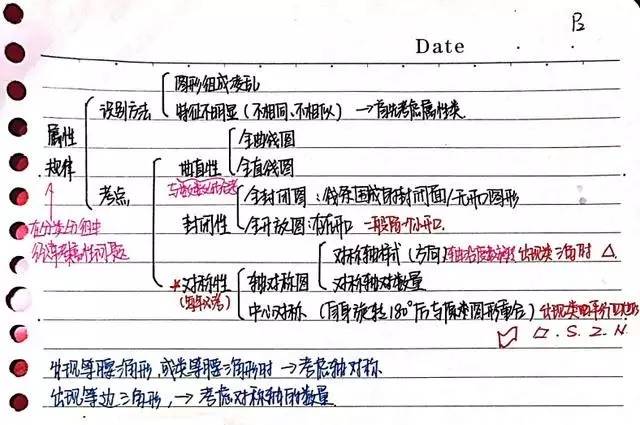 P2
Date
图形组成凌乱
识别方法
特征不明显（不相同、不相似）→首先考虑属性类
属性
规律
全曲线图
曲直性
全直线图
考点
全封闭图：线条围成的封闭面/无开口图形
封闭性
全开放图：有开口 一般留一个小开口
在分类分组中
对称轴样式（方向） 出现类三角时 △
*对称性
轴对称图
对称轴数量
（每年必考）
中心对称（自身旋转180°后与原来图形重合）出现类平行四边形
▱.S.Z.N.
出现等腰三角形,或类等腰三角形时→考虑轴对称
出现等边三角形,→考虑对称轴的数量